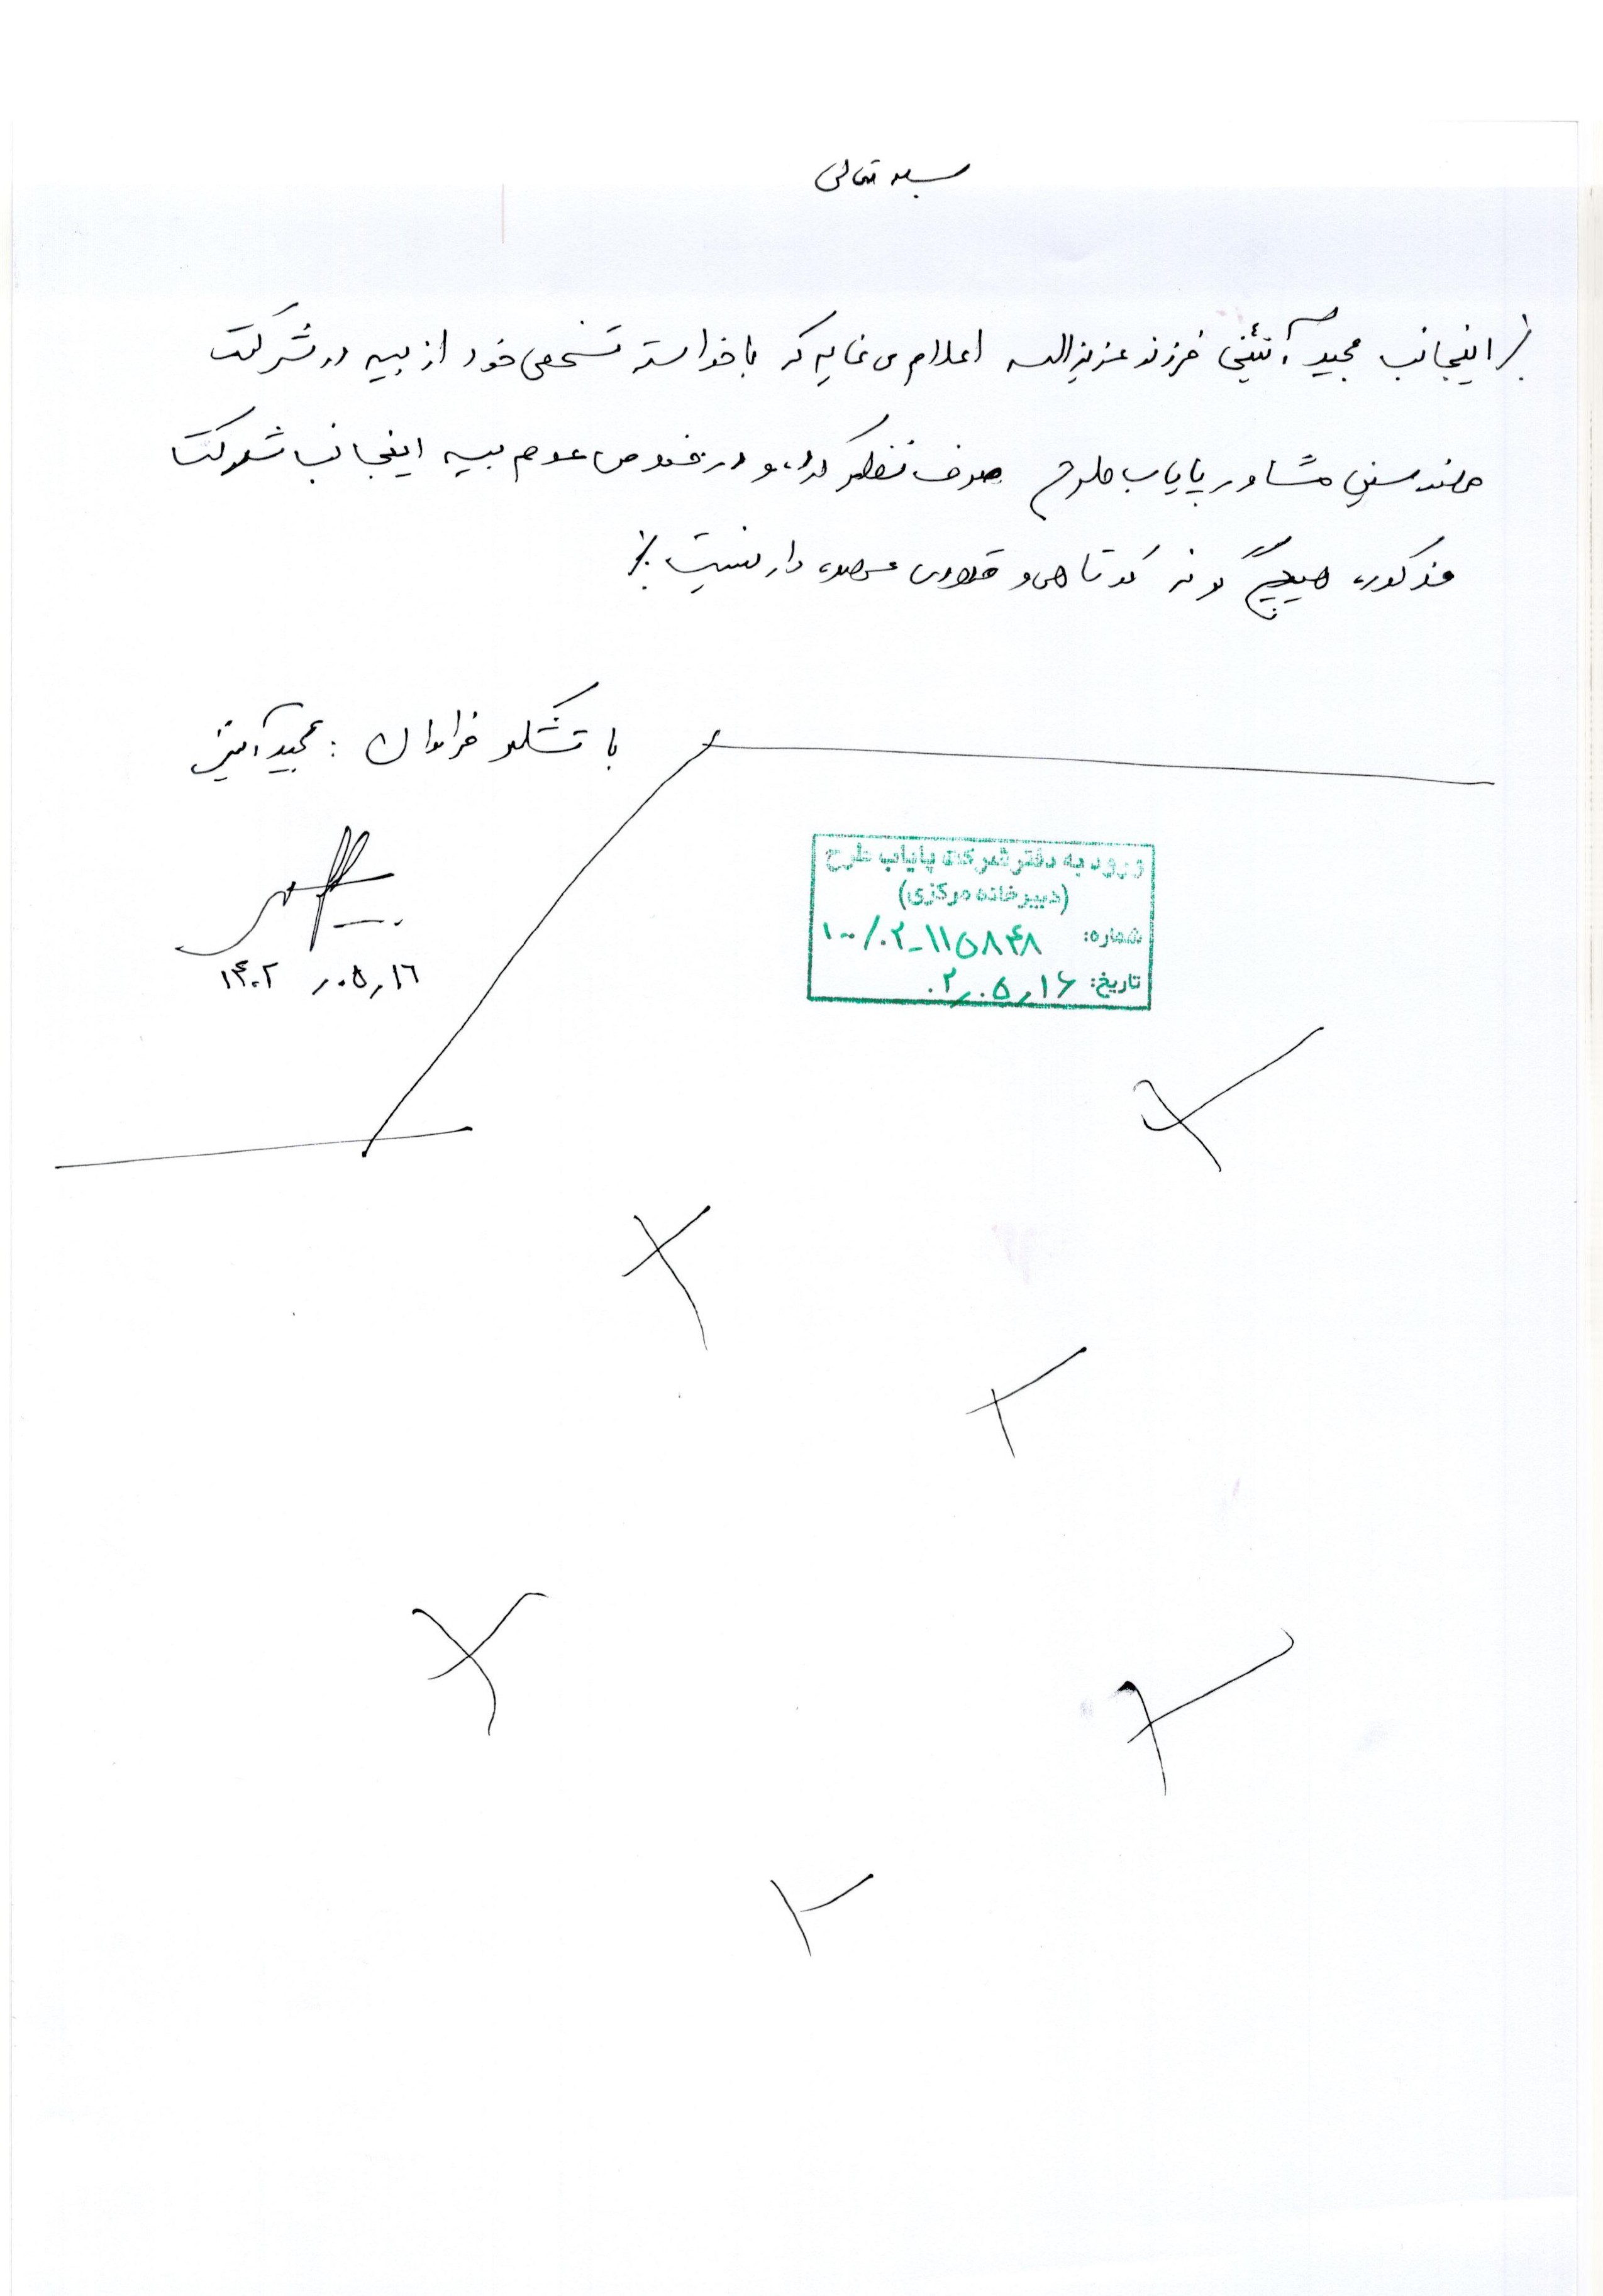 بسمه تعالی
اینجانب مجید آئینی فرزند عزیزاله اعلام می نمایم که با خواسته شخصی خود از بیمه در شرکت
مهندسین مشاور پایاب طرح صرف نظر کرده و در خصوص عدم بیمه اینجانب شرکت
مذکور، هیچ گونه کوتاهی و قصوری عهده دار نیست ./
با تشکر فراوان : مجید آئینی
۱۴۰۲/۰۵/۱۶
ورود به دفتر شرکت پایاب طرح
(دبیرخانه مرکزی)
شماره: ۱۰۰/۰۲-۱۱۵۸۴۸
تاریخ: ۰۲/۰۵/۱۶